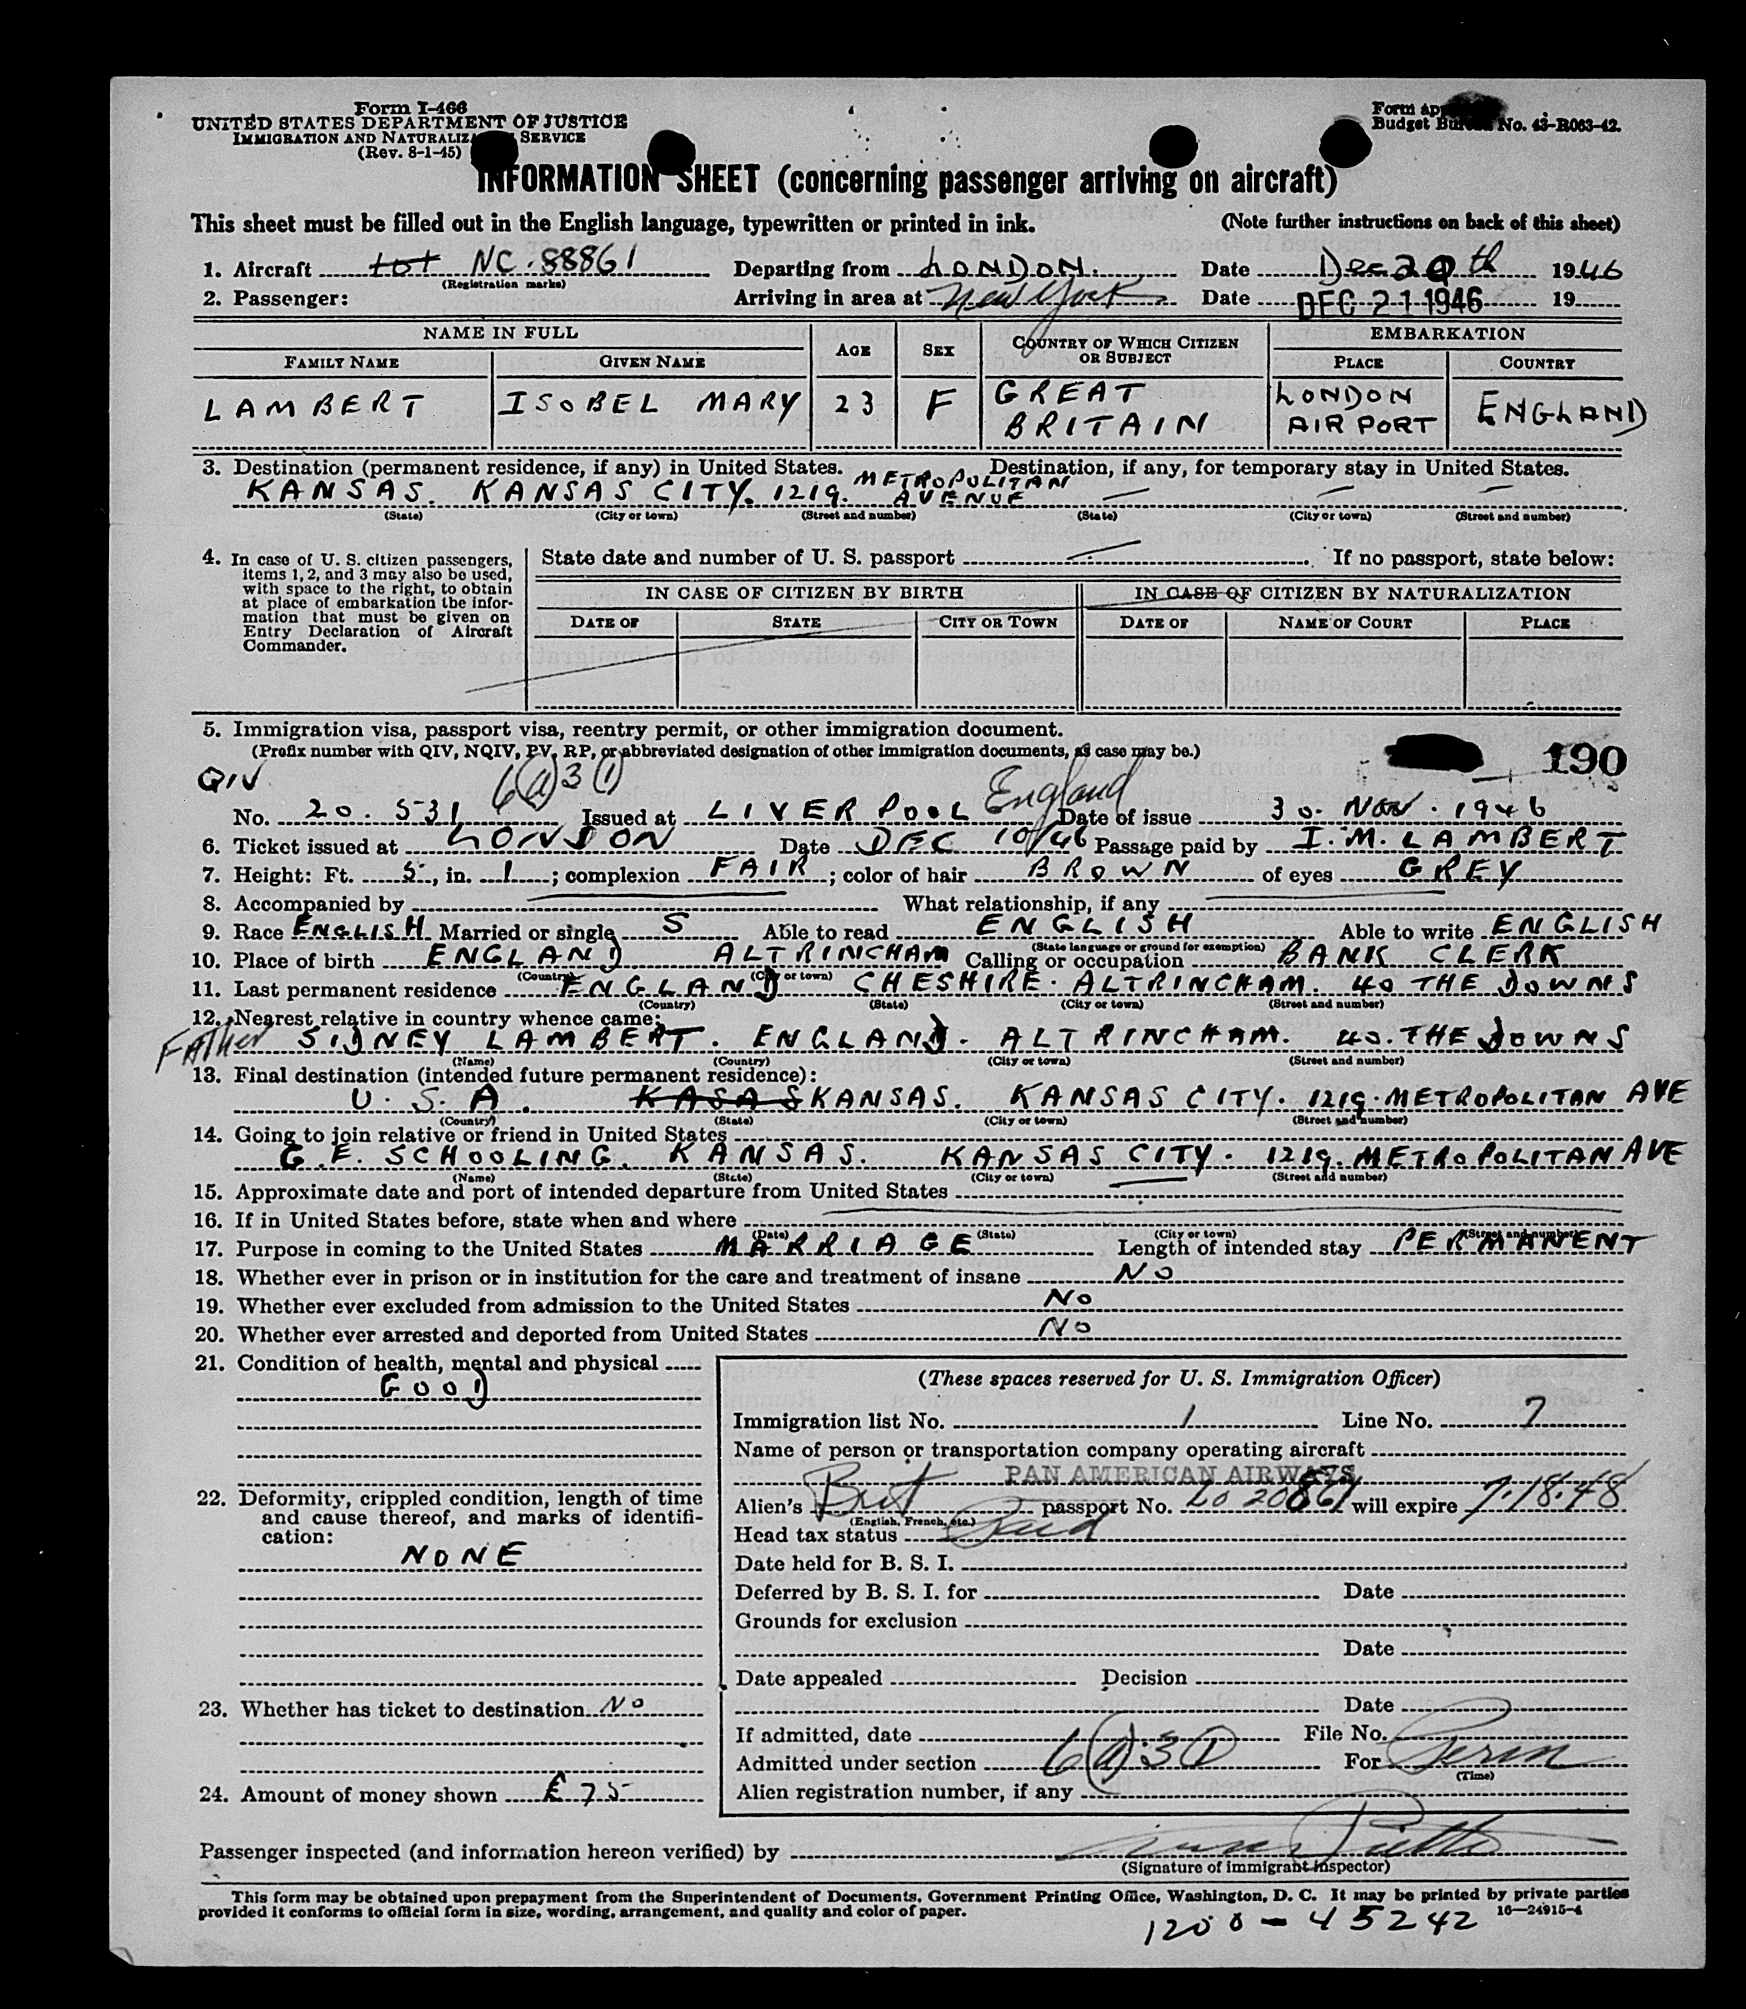 Form I-466
UNITED STATES DEPARTMENT OF JUSTICE
IMMIGRATION AND NATURALIZATION SERVICE
(Rev. 8-1-45)
Form
Budget Bureau No. 43-R063-42.
INFORMATION SHEET (concerning passenger arriving on aircraft)
This sheet must be filled out in the English language, typewritten or printed in ink. (Note further instructions on back of this sheet)
1. Aircraft NC. 88861 Departing from LONDON. Date Dec 20th 1946
(Registration marks)
2. Passenger: Arriving in area at New York Date DEC 21 1946 19
NAME IN FULL AGE SEX COUNTRY OF WHICH CITIZEN OR SUBJECT EMBARKATION
FAMILY NAME GIVEN NAME PLACE COUNTRY
LAMBERT ISOBEL MARY 23 F GREAT BRITAIN LONDON AIRPORT ENGLAND
3. Destination (permanent residence, if any) in United States. Destination, if any, for temporary stay in United States.
KANSAS. KANSAS CITY. 1219. METROPOLITAN AVENUE
(State) (City or town) (Street and number) (State) (City or town) (Street and number)
4. In case of U. S. citizen passengers, items 1, 2, and 3 may also be used, with space to the right, to obtain at place of embarkation the information that must be given on Entry Declaration of Aircraft Commander.
State date and number of U. S. passport . If no passport, state below:
IN CASE OF CITIZEN BY BIRTH IN CASE OF CITIZEN BY NATURALIZATION
DATE OF STATE CITY OR TOWN DATE OF NAME OF COURT PLACE
5. Immigration visa, passport visa, reentry permit, or other immigration document.
(Prefix number with QIV, NQIV, PV, RP, or abbreviated designation of other immigration documents, as case may be.)
190
QIV 6(a)3(1)
No. 20.531 Issued at LIVERPOOL England Date of issue 30. NOV. 1946
6. Ticket issued at LONDON Date DEC 10/46 Passage paid by I. M. LAMBERT
7. Height: Ft. 5, in. 1; complexion FAIR; color of hair BROWN of eyes GREY
8. Accompanied by What relationship, if any
9. Race ENGLISH Married or single S Able to read ENGLISH Able to write ENGLISH
(State language or ground for exemption)
10. Place of birth ENGLAND ALTRINCHAM Calling or occupation BANK CLERK
(Country) (City or town)
11. Last permanent residence ENGLAND CHESHIRE. ALTRINCHAM. 40 THE DOWNS
(Country) (State) (City or town) (Street and number)
12. Nearest relative in country whence came:
Father SIDNEY LAMBERT. ENGLAND. ALTRINCHAM. 40. THE DOWNS
(Name) (Country) (City or town) (Street and number)
13. Final destination (intended future permanent residence):
U. S. A. KASAS KANSAS. KANSAS CITY. 1219. METROPOLITAN AVE
(Country) (State) (City or town) (Street and number)
14. Going to join relative or friend in United States
G. E. SCHOOLING. KANSAS. KANSAS CITY. 1219. METROPOLITAN AVE
(Name) (State) (City or town) (Street and number)
15. Approximate date and port of intended departure from United States
16. If in United States before, state when and where
(Date) (State) (City or town) (Street and number)
17. Purpose in coming to the United States MARRIAGE Length of intended stay PERMANENT
18. Whether ever in prison or in institution for the care and treatment of insane NO
19. Whether ever excluded from admission to the United States NO
20. Whether ever arrested and deported from United States NO
21. Condition of health, mental and physical
GOOD
22. Deformity, crippled condition, length of time and cause thereof, and marks of identification:
NONE
23. Whether has ticket to destination NO
24. Amount of money shown £75
(These spaces reserved for U. S. Immigration Officer)
Immigration list No. 1 Line No. 7
Name of person or transportation company operating aircraft
PAN AMERICAN AIRWAYS
Alien's Brit passport No. LO 20861 will expire 7.18.48
(English, French, etc.)
Head tax status Paid
Date held for B. S. I.
Deferred by B. S. I. for Date
Grounds for exclusion
Date
Date appealed Decision
Date
If admitted, date File No.
Admitted under section 6(a)3(1) For Perm
(Time)
Alien registration number, if any
Passenger inspected (and information hereon verified) by
(Signature of immigrant inspector)
This form may be obtained upon prepayment from the Superintendent of Documents, Government Printing Office, Washington, D. C. It may be printed by private parties
provided it conforms to official form in size, wording, arrangement, and quality and color of paper. 16—24915-4
1200-45242